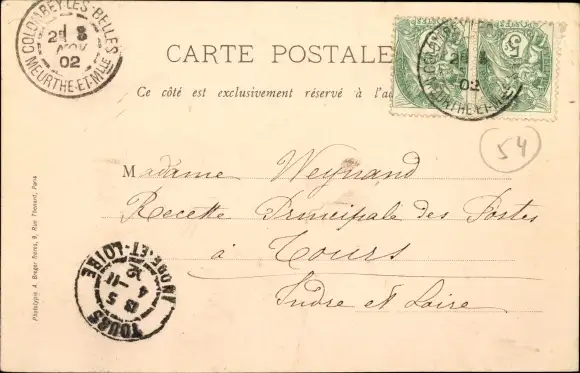 COLOMBEY-LES-BELLES
8
NOV
02
MEURTHE-ET-MLLE
CARTE POSTALE
Ce côté est exclusivement réservé à l'ad
5
02
MEURTHE-ET-M
54
Madame Weynand
Recette Principale des Postes
à Tours
Indre et Loire
TOURS
INDRE-ET-LOIRE
Phototypie A. Breger frères, 9, Rue Thénard, Paris